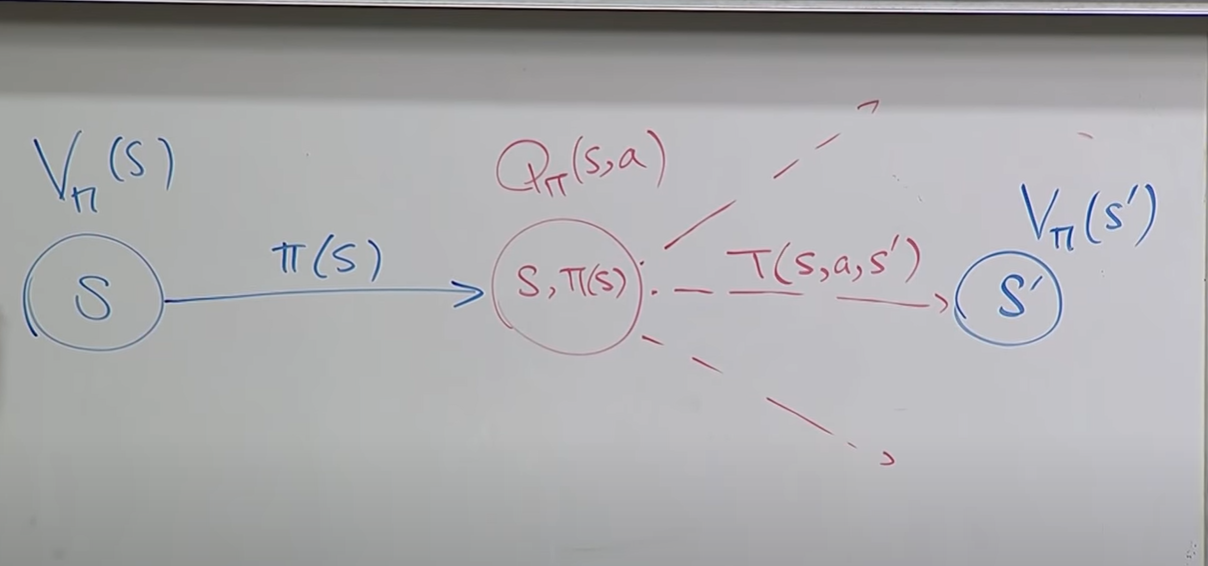 Vπ(S)
π(S)
S
Qπ(s,a)
S,π(s)
T(s,a,s')
Vπ(s')
S'